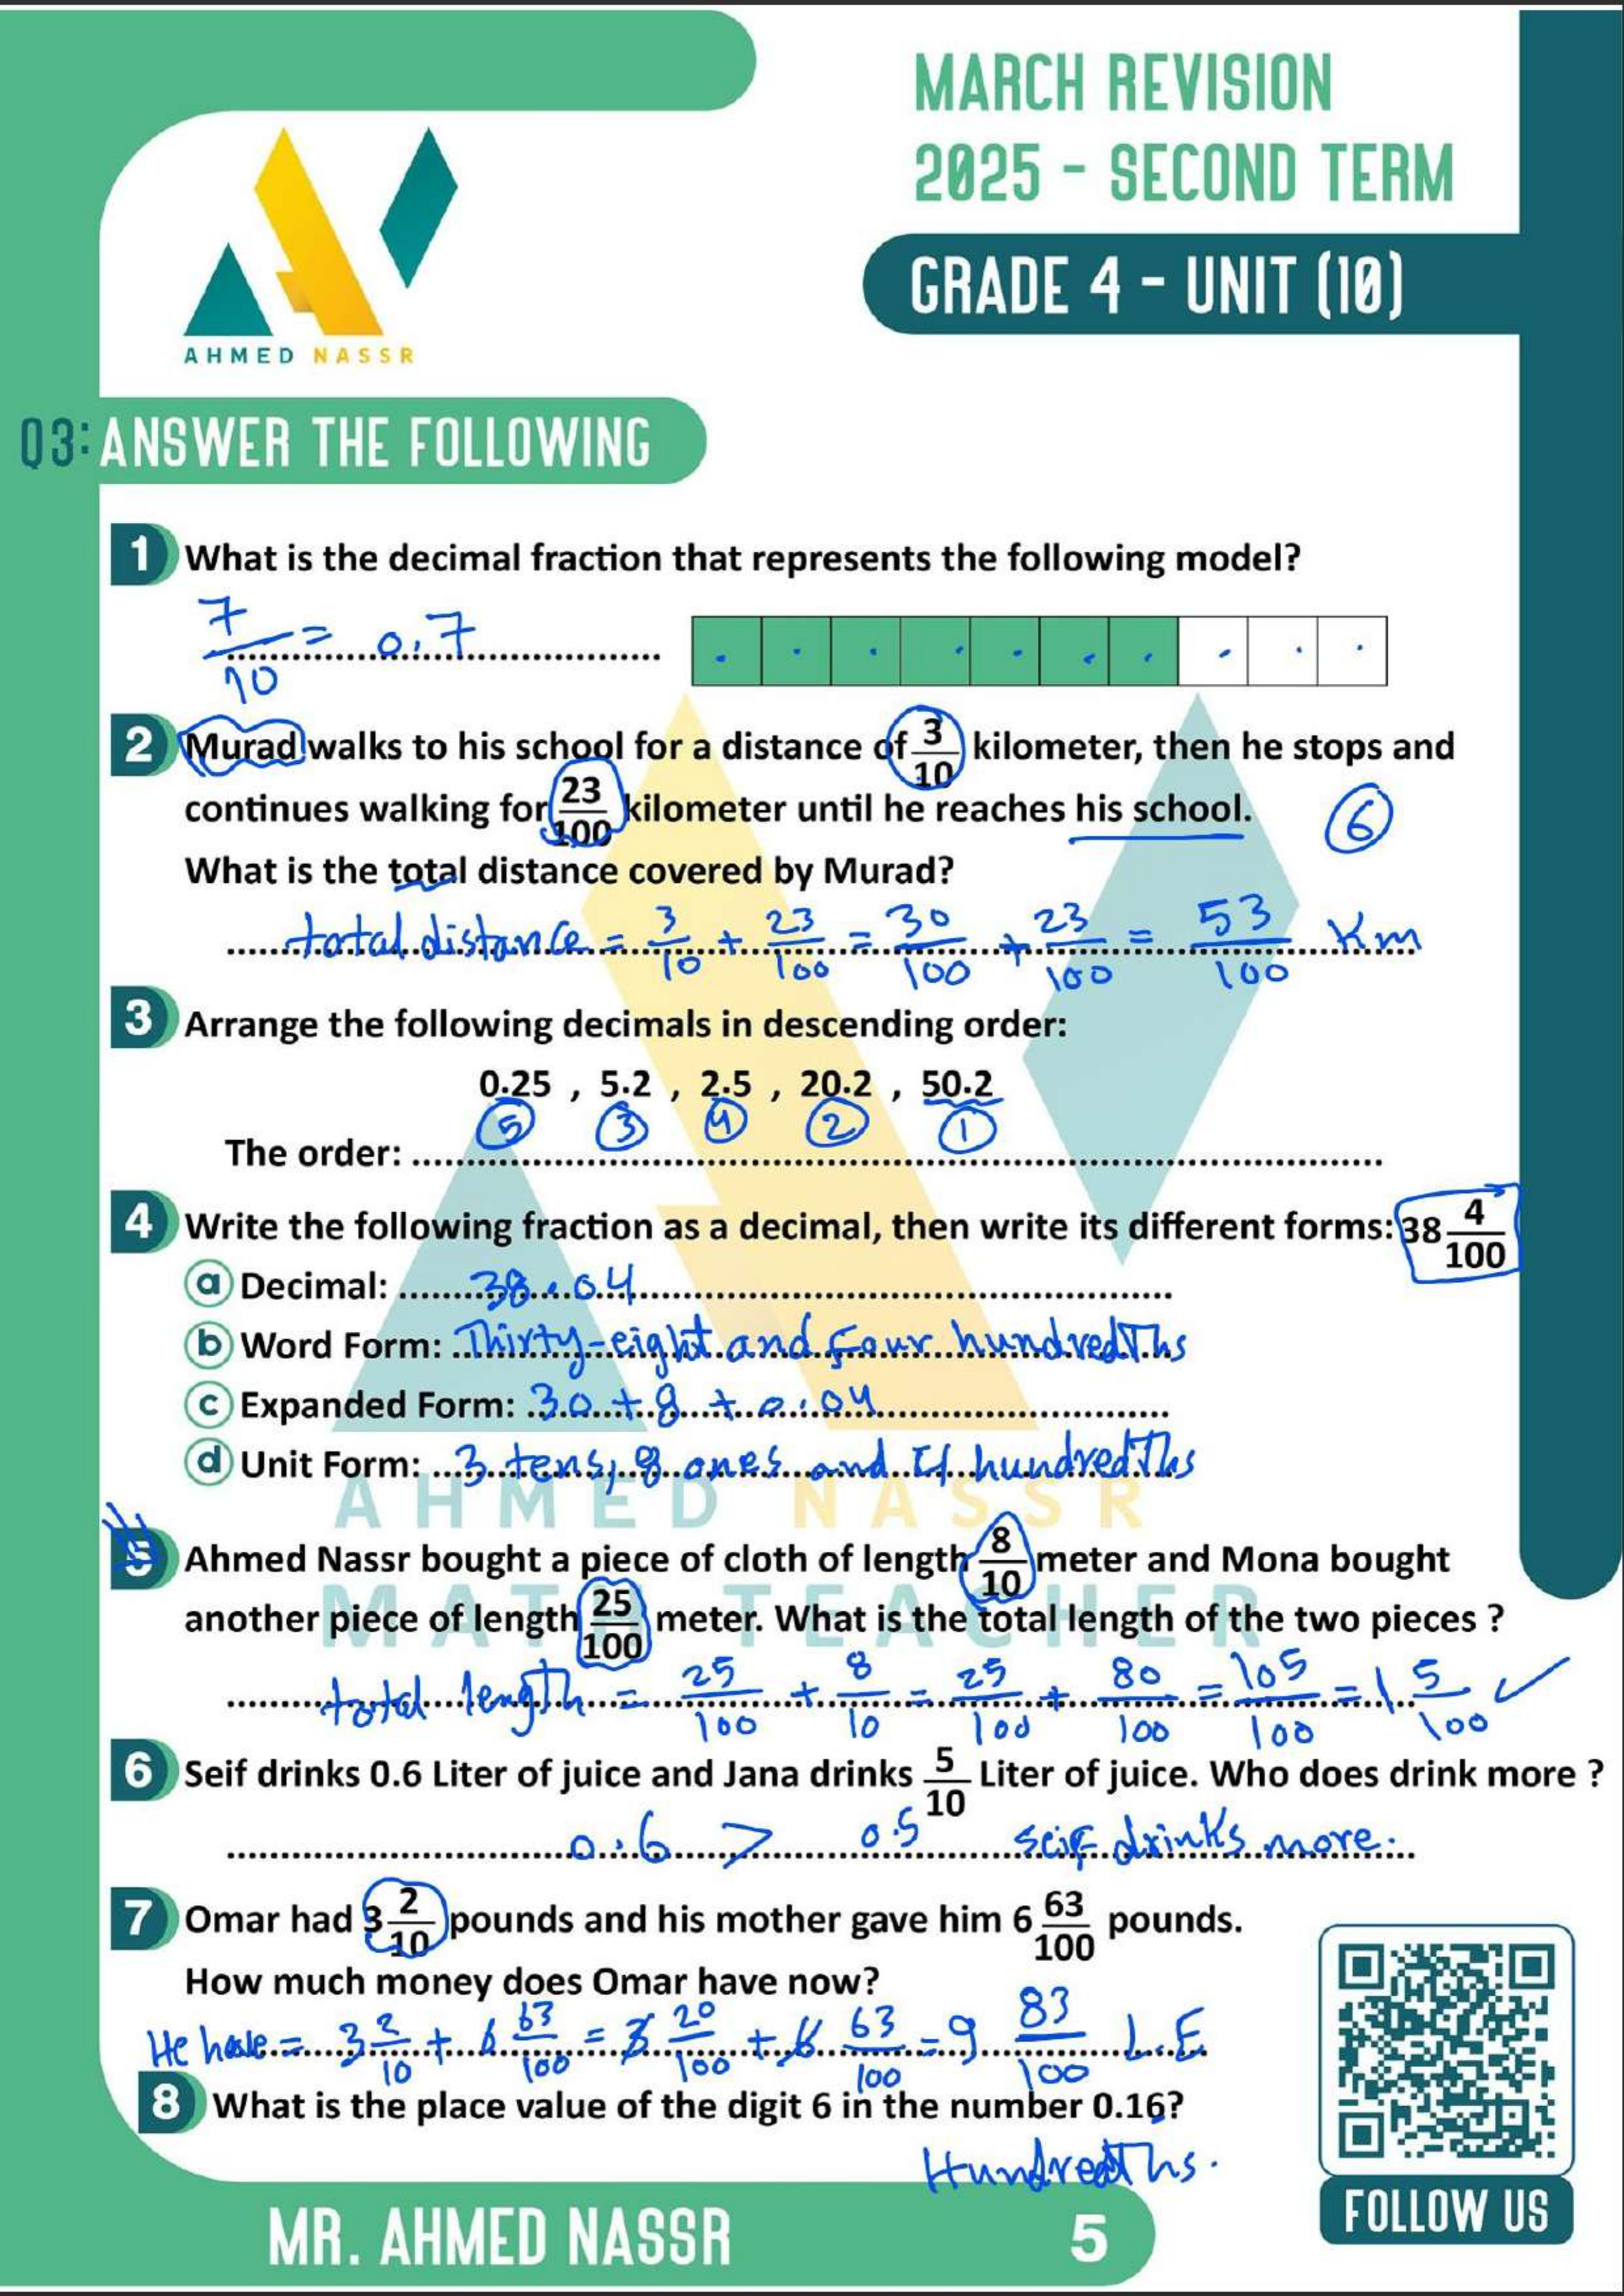 MARCH REVISION
2025 - SECOND TERM
GRADE 4 - UNIT (10)
AHMED NASSR
Q3: ANSWER THE FOLLOWING
1 What is the decimal fraction that represents the following model?
7/10 = 0.7
2 Murad walks to his school for a distance of 3/10 kilometer, then he stops and
continues walking for 23/100 kilometer until he reaches his school.
6
What is the total distance covered by Murad?
total distance = 3/10 + 23/100 = 30/100 + 23/100 = 53/100 Km
3 Arrange the following decimals in descending order:
0.25 , 5.2 , 2.5 , 20.2 , 50.2
5 3 4 2 1
The order: ........
4 Write the following fraction as a decimal, then write its different forms: 38 4/100
a Decimal: 38.04
b Word Form: Thirty-eight and four hundredths
c Expanded Form: 30 + 8 + 0.04
d Unit Form: 3 tens, 8 ones and 4 hundredths
AHMED NASSR
5 Ahmed Nassr bought a piece of cloth of length 8/10 meter and Mona bought
MATH TEACHER
another piece of length 25/100 meter. What is the total length of the two pieces ?
total length = 25/100 + 8/10 = 25/100 + 80/100 = 105/100 = 1 5/100 ✓
6 Seif drinks 0.6 Liter of juice and Jana drinks 5/10 Liter of juice. Who does drink more ?
0.6 > 0.5 seif drinks more.
7 Omar had 3 2/10 pounds and his mother gave him 6 63/100 pounds.
How much money does Omar have now?
He have = 3 2/10 + 6 63/100 = 3 20/100 + 6 63/100 = 9 83/100 L.E
8 What is the place value of the digit 6 in the number 0.16?
Hundredths.
MR. AHMED NASSR
5
FOLLOW US